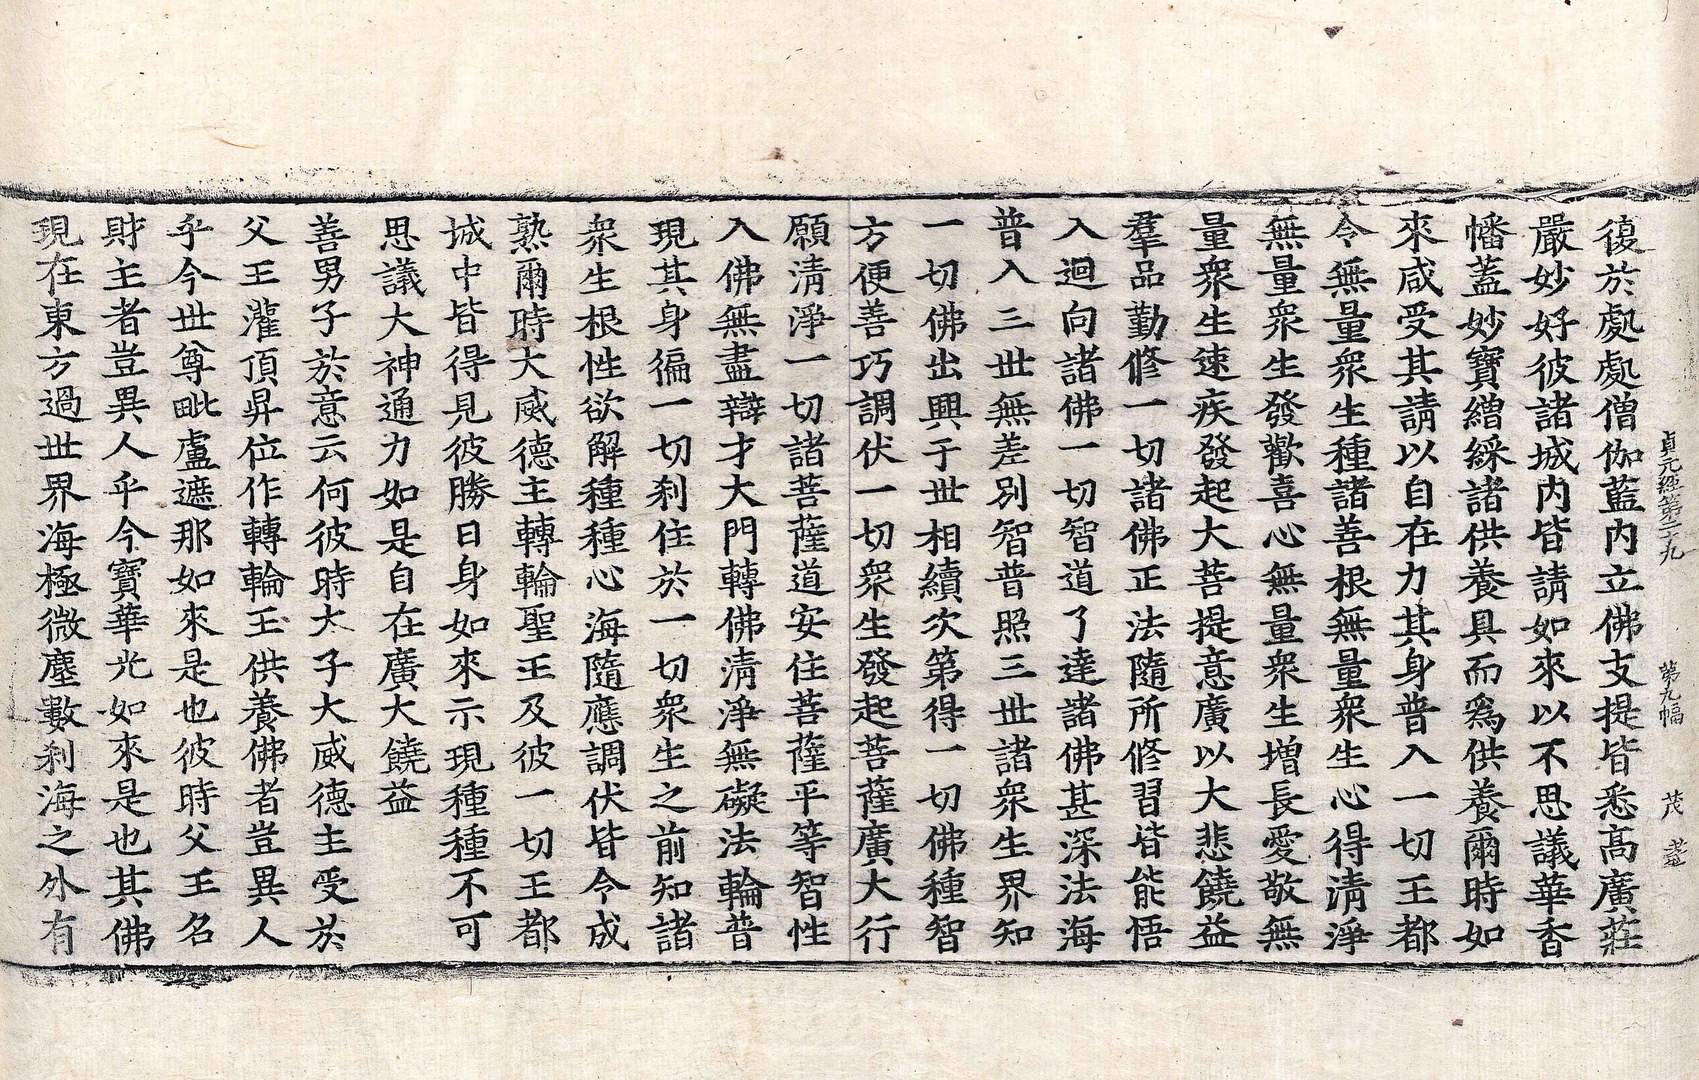 貞元經第二十九 第九幅 茂
復於處處僧伽藍內立佛支提皆悉高廣莊
嚴妙好彼諸城內皆請如來以不思議華香
幡蓋妙寶繒綵諸供養具而爲供養爾時如
來咸受其請以自在力其身普入一切王都
令無量衆生種諸善根無量衆生心得清淨
無量衆生發歡喜心無量衆生增長愛敬無
量衆生速疾發起大菩提意廣以大悲饒益
羣品勤修一切諸佛正法隨所修習皆能悟
入迴向諸佛一切智道了達諸佛甚深法海
普入三世無差別智普照三世諸衆生界知
一切佛出興于世相續次第得一切佛種智
方便善巧調伏一切衆生發起菩薩廣大行
願清淨一切諸菩薩道安住菩薩平等智性
入佛無盡辯才大門轉佛清淨無礙法輪普
現其身徧一切剎住於一切衆生之前知諸
衆生根性欲解種種心海隨應調伏皆令成
熟爾時大威德主轉輪聖王及彼一切王都
城中皆得見彼勝日身如來示現種種不可
思議大神通力如是自在廣大饒益
善男子於意云何彼時大子大威德主受於
父王灌頂昇位作轉輪王供養佛者豈異人
乎今世尊毗盧遮那如來是也彼時父王名
財主者豈異人乎今寶華光如來是也其佛
現在東方過世界海極微塵數剎海之外有